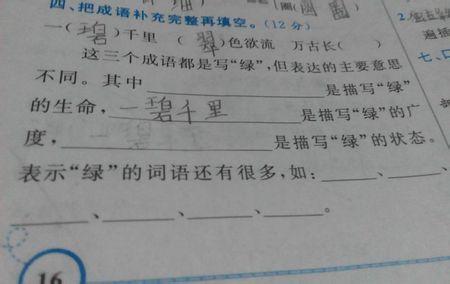 四、把成语补充完整再填空。(12分)
一(碧)千里 (翠)色欲流 万古长( )
这三个成语都是写“绿”,但表达的主要意思
不同。其中____是描写“绿”
的生命,一碧千里是描写“绿”的广
度,____是描写“绿”的状态。
表示“绿”的词语还有很多,如:____、____、
____、____、____、____。
16
2.
遍插
七、